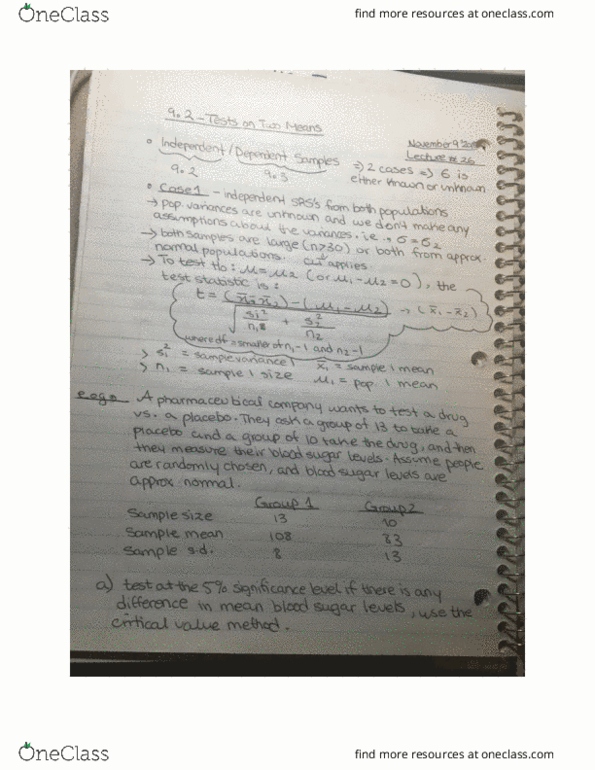 OneClass
find more resources at oneclass.com
9.2 - Tests on Two Means
November 9
Lecture # 26
• Independent / Dependent Samples
9.2
9.3
⇒ 2 cases ⇒ σ is
either known or unknown
• Case 1 - independent SRS's from both populations
→ pop. variances are unknown and we don't make any
assumptions about the variances. i.e., σ = σ2
→ both samples are large (n>30) or both from approx.
normal populations. CLT applies.
→ To test Ho: μ = μ2 (or μ1 - μ2 = 0), the
test statistic is:
t = (x̄1 - x̄2) - (μ1 - μ2) → (x̄1 - x̄2)
√ s1²/n1 + s2²/n2
where df is smaller of n1 - 1 and n2 - 1
→ s1² = sample variance 1 x̄1 = sample 1 mean
→ n1 = sample 1 size μ1 = pop. 1 mean
e.g. A pharmaceutical company wants to test a drug
vs. a placebo. They ask a group of 13 to take a
placebo and a group of 10 take the drug, and then
they measure their blood sugar levels. Assume people
are randomly chosen, and blood sugar levels are
approx normal.
Group 1 Group 2
Sample size 13 10
Sample mean 108 83
Sample s.d. 8 13
a) test at the 5% significance level if there is any
difference in mean blood sugar levels, use the
critical value method.
OneClass
find more resources at oneclass.com